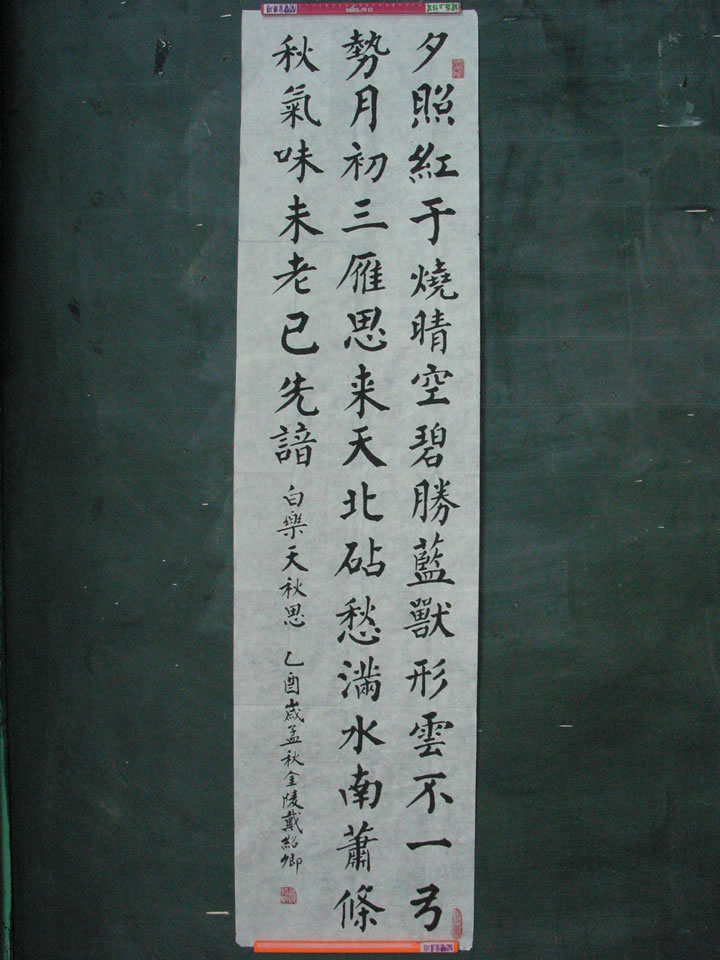 夕照紅于燒晴空碧勝藍獸形雲不一弓
勢月初三雁思来天北砧愁滿水南蕭條
秋氣味未老已先諳
白樂天秋思 乙酉歲孟秋金陵戴紹卿